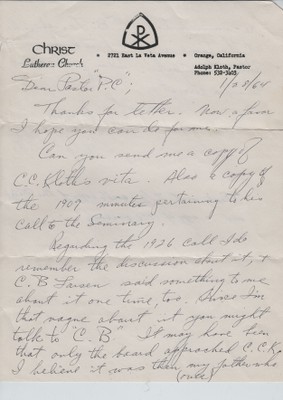 CHRIST
Lutheran Church
2721 East La Veta Avenue • Orange, California
Adolph Kloth, Pastor
Phone: 538-3403
1/28/64
Dear Pastor "P.C";
Thanks for letter. Now a favor
I hope you can do for me.
Can you send me a copy of
C.C. Kloth's vita. Also a copy of
the 1909 minutes pertaining to his
call to the Seminary.
Regarding the 1926 call I do
remember the discussion about it, &
C.B Larsen said something to me
about it one time, too. Since I'm
that vague about it you might
talk to "C.B" It may have been
that only the board approached C.C.K.
I believe it was then my father who
(over)